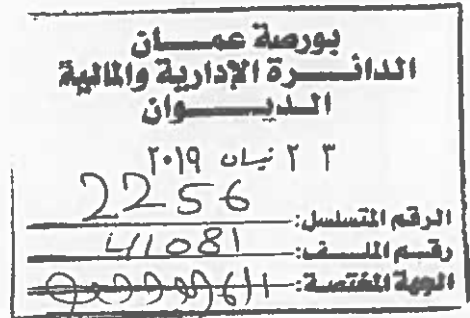 بورصة عمـــان
الدائـــرة الإدارية والمالية
الديـــوان
٢٣ نيسان ٢٠١٩
الرقم المتسلسل: 2256
رقـــم الملـــف: 41081
الجهة المختصة: